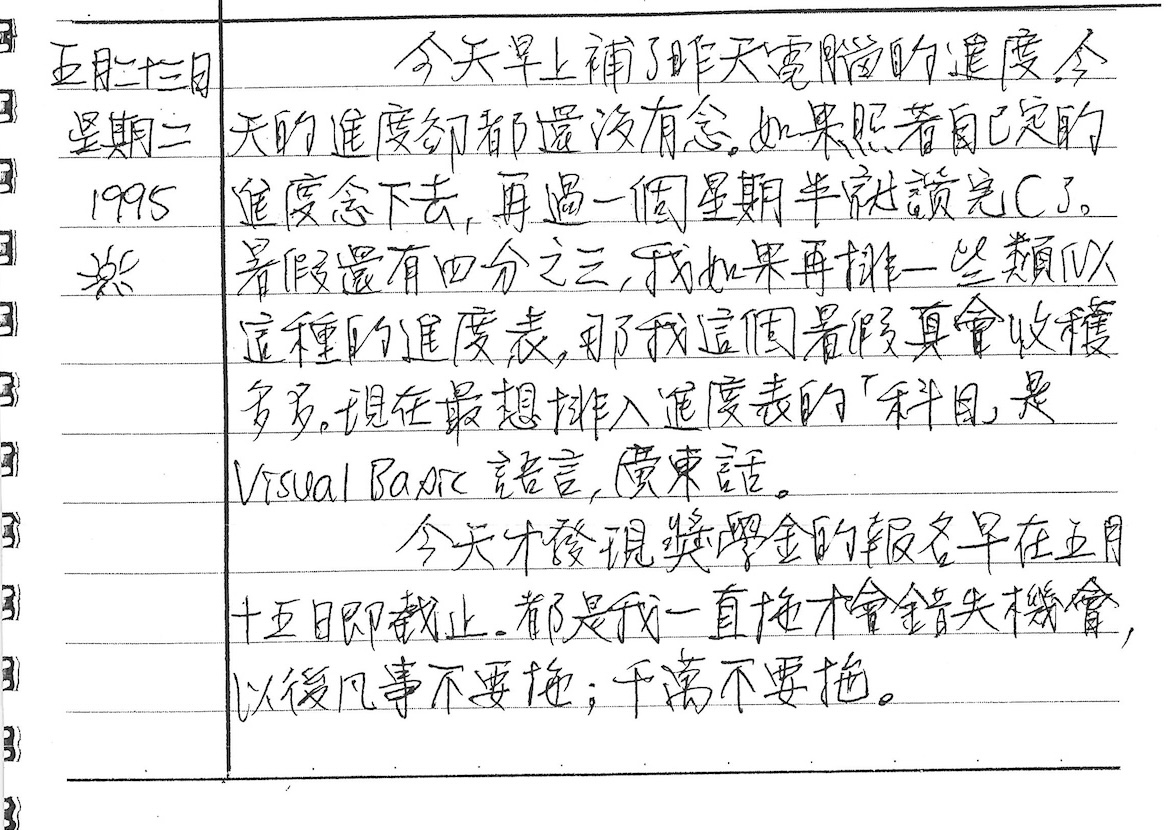 五月二十三日
星期二
1995
今天早上補了昨天電腦的進度.今
天的進度卻都還沒有念。如果照著自己定的
進度念下去,再過一個星期半就讀完C了。
暑假還有四分之三,我如果再排一些類似
這種的進度表,那我這個暑假真會收穫
多多。現在最想排入進度表的「科目」是
Visual Basic 語言,廣東話。
今天才發現獎學金的報名早在五月
十五日即截止.都是我一直拖才會錯失機會,
以後凡事不要拖;千萬不要拖。